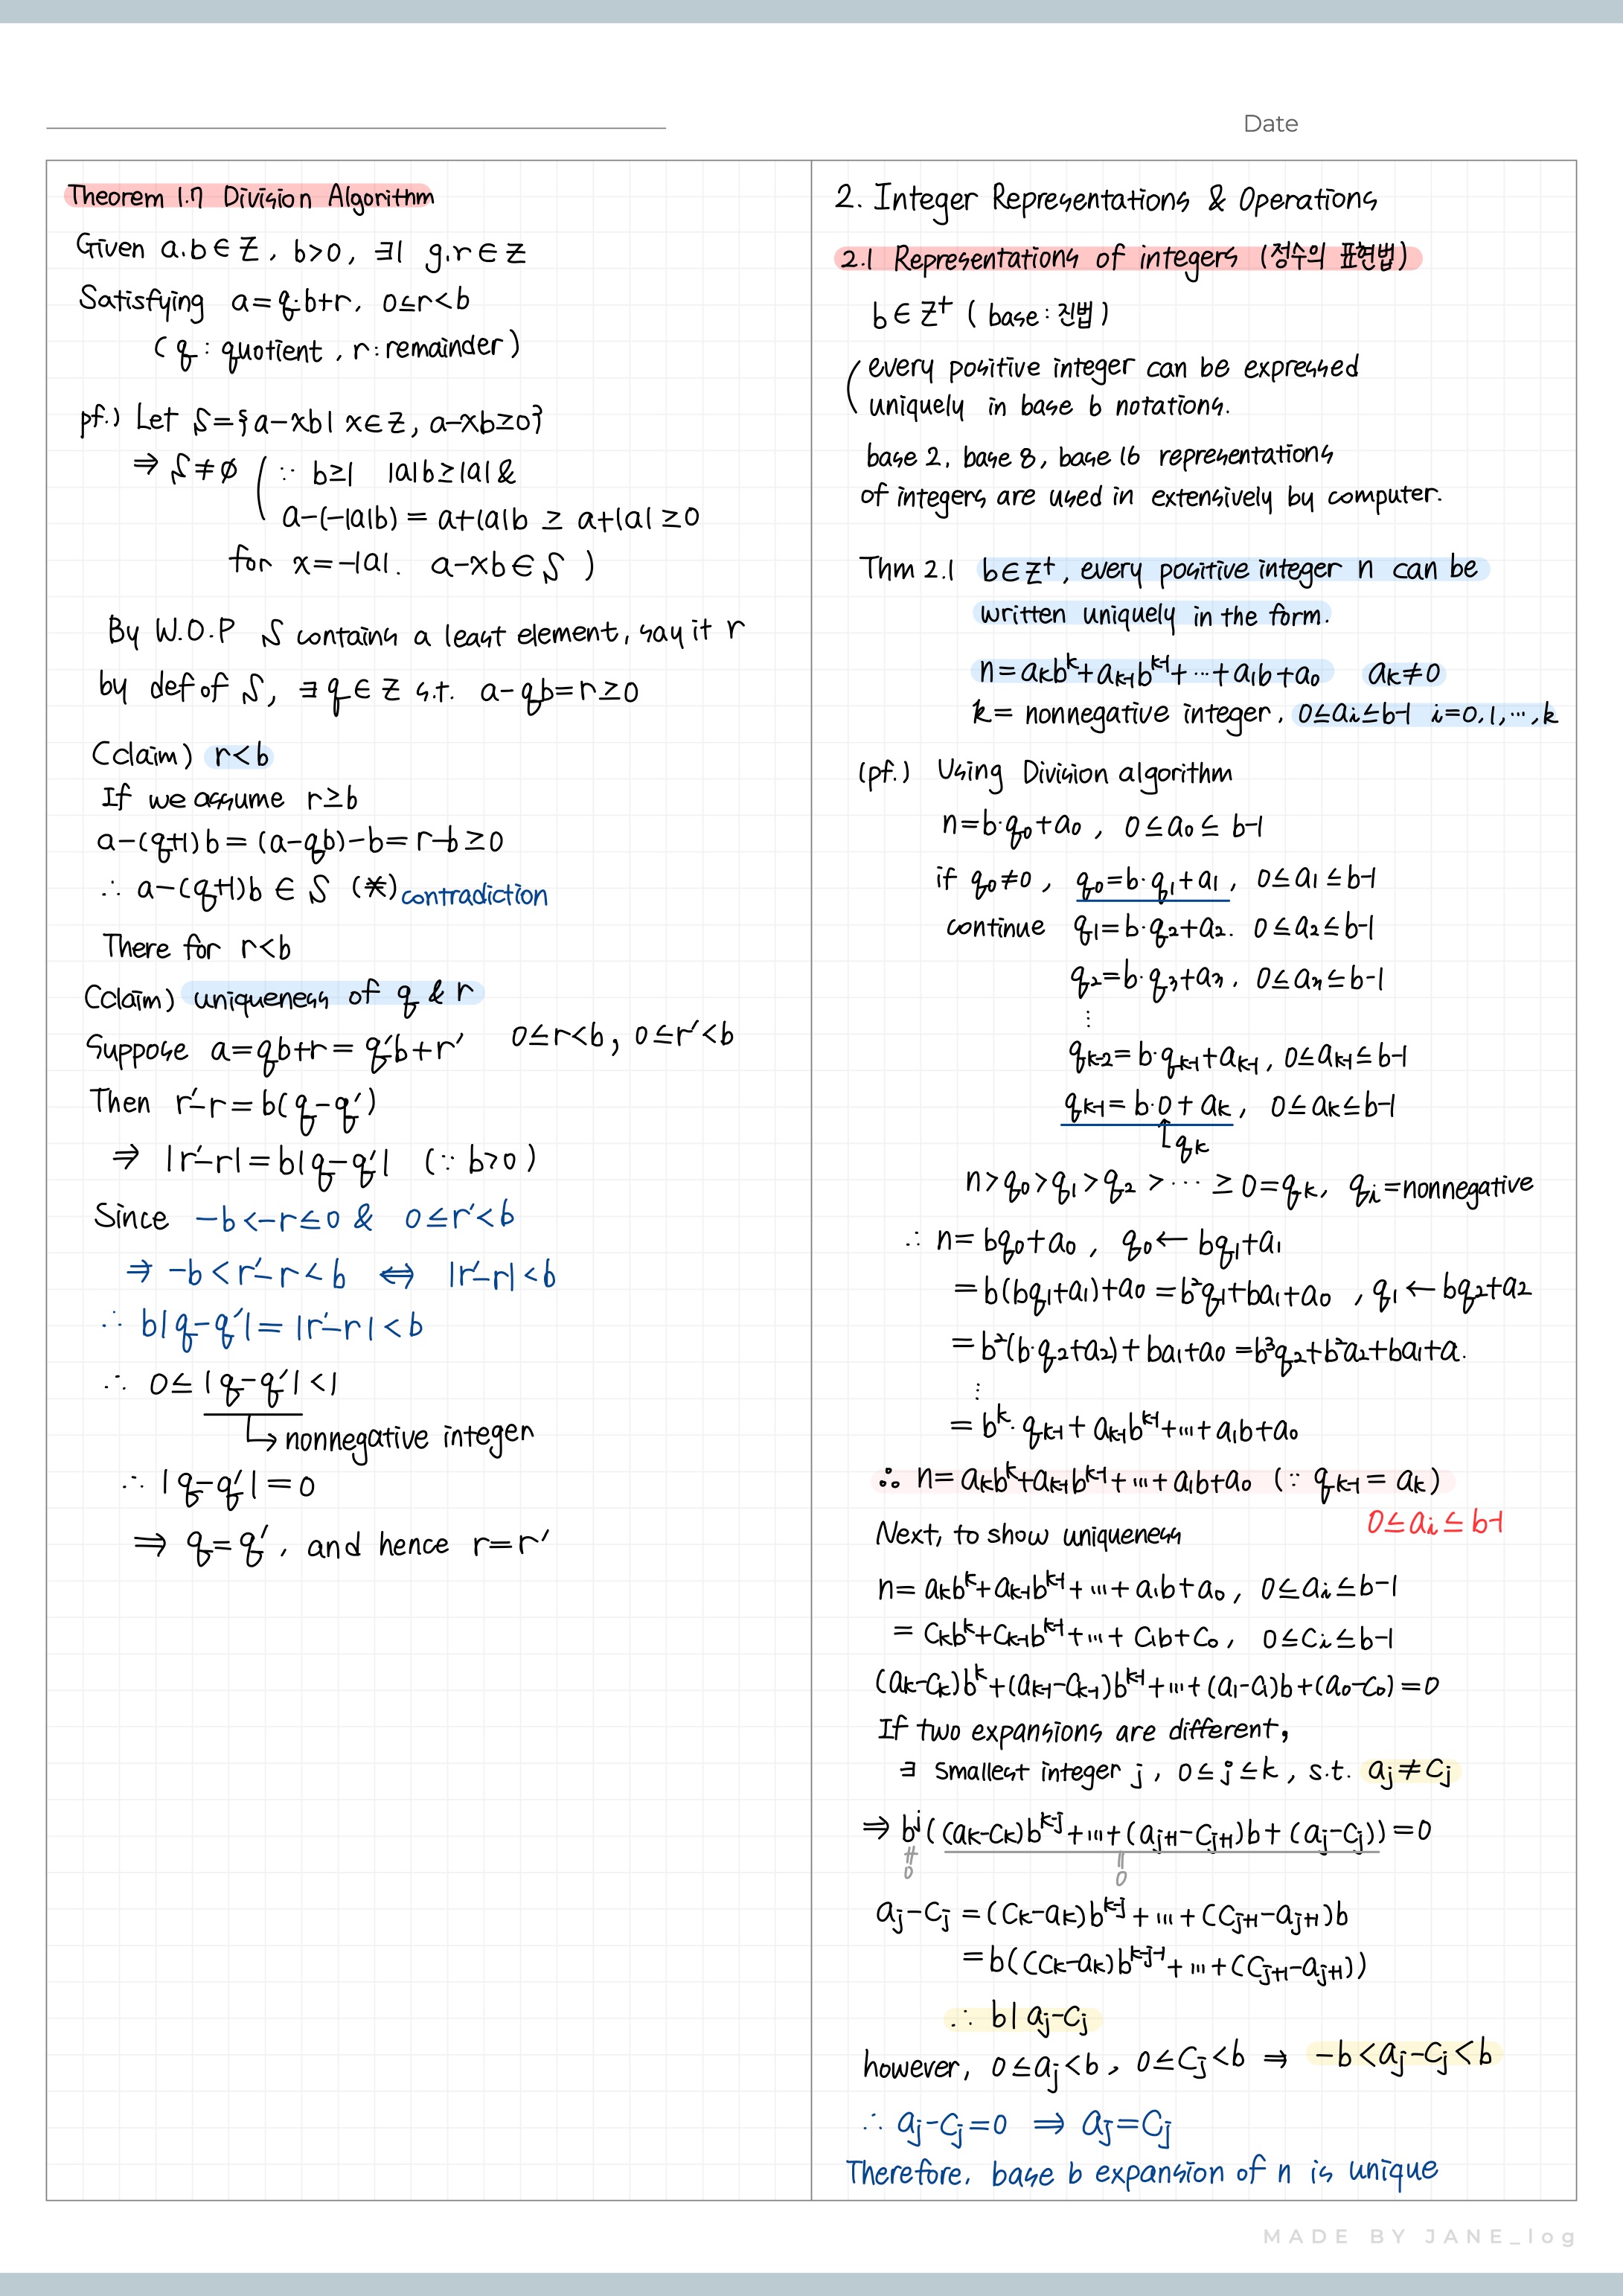 Date
Theorem 1.7 Division Algorithm
Given a.b∈Z, b>0, ∃| q.r∈Z
Satisfying a=q·b+r, 0≤r<b
(q: quotient, r: remainder)
pf.) Let S={a-xb| x∈Z, a-xb≥0}
⇒ S≠∅ (∵ b≥1 |a|b≥|a| &
a-(-|a|b) = a+|a|b ≥ a+|a| ≥0
for x=-|a|. a-xb∈S )
By W.O.P S contains a least element, say it r
by def of S, ∃q∈Z s.t. a-qb=r≥0
(claim) r<b
If we assume r≥b
a-(q+1)b = (a-qb)-b=r-b≥0
∴ a-(q+1)b ∈ S (※) contradiction
There for r<b
(claim) uniqueness of q & r
Suppose a=qb+r= q'b+r' 0≤r<b, 0≤r'<b
Then r'-r = b(q-q')
⇒ |r'-r| = b|q-q'| (∵ b>0)
Since -b<-r≤0 & 0≤r'<b
⇒ -b<r'-r<b ⇔ |r'-r|<b
∴ b|q-q'|= |r'-r|<b
∴ 0≤|q-q'|<1
↳ nonnegative integer
∴ |q-q'|=0
⇒ q=q', and hence r=r'
2. Integer Representations & Operations
2.1 Representations of integers (정수의 표현법)
b∈Z⁺ ( base: 진법)
(every positive integer can be expressed
uniquely in base b notations.
base 2, base 8, base 16 representations
of integers are used in extensively by computer.
Thm 2.1 b∈Z⁺, every positive integer n can be
written uniquely in the form.
n=aₖbᵏ+aₖ₋₁bᵏ⁻¹+⋯+a₁b+a₀ aₖ≠0
k= nonnegative integer, 0≤aᵢ≤b-1 i=0,1,⋯,k
(pf.) Using Division algorithm
n=b·q₀+a₀, 0≤a₀≤b-1
if q₀≠0, q₀=b·q₁+a₁, 0≤a₁≤b-1
continue q₁=b·q₂+a₂. 0≤a₂≤b-1
q₂=b·q₃+a₃, 0≤a₃≤b-1
⋮
qₖ₋₂=b·qₖ₋₁+aₖ₋₁, 0≤aₖ₋₁≤b-1
qₖ₋₁= b·0+aₖ, 0≤aₖ≤b-1
↑qₖ
n>q₀>q₁>q₂>⋯≥0=qₖ, qᵢ=nonnegative
∴ n= bq₀+a₀, q₀←bq₁+a₁
= b(bq₁+a₁)+a₀ =b²q₁+ba₁+a₀, q₁←bq₂+a₂
= b²(b·q₂+a₂)+ba₁+a₀ =b³q₂+b²a₂+ba₁+a.
⋮
= bᵏ·qₖ₋₁+aₖ₋₁bᵏ⁻¹+⋯+a₁b+a₀
∴ n= aₖbᵏ+aₖ₋₁bᵏ⁻¹+⋯+a₁b+a₀ (∵ qₖ₋₁=aₖ)
0≤aᵢ≤b-1
Next, to show uniqueness
n= aₖbᵏ+aₖ₋₁bᵏ⁻¹+⋯+a₁b+a₀, 0≤aᵢ≤b-1
= cₖbᵏ+cₖ₋₁bᵏ⁻¹+⋯+c₁b+c₀, 0≤cᵢ≤b-1
(aₖ-cₖ)bᵏ+(aₖ₋₁-cₖ₋₁)bᵏ⁻¹+⋯+(a₁-c₁)b+(a₀-c₀)=0
If two expansions are different,
∃ smallest integer j, 0≤j≤k, s.t. aⱼ≠cⱼ
⇒ bʲ((aₖ-cₖ)bᵏ⁻ʲ+⋯+(aⱼ₊₁-cⱼ₊₁)b+(aⱼ-cⱼ))=0
≠ 0 = 0
aⱼ-cⱼ =(cₖ-aₖ)bᵏ⁻ʲ+⋯+(cⱼ₊₁-aⱼ₊₁)b
=b((cₖ-aₖ)bᵏ⁻ʲ⁻¹+⋯+(cⱼ₊₁-aⱼ₊₁))
∴ b| aⱼ-cⱼ
however, 0≤aⱼ<b, 0≤cⱼ<b ⇒ -b<aⱼ-cⱼ<b
∴ aⱼ-cⱼ=0 ⇒ aⱼ=cⱼ
Therefore, base b expansion of n is unique
MADE BY JANE_log